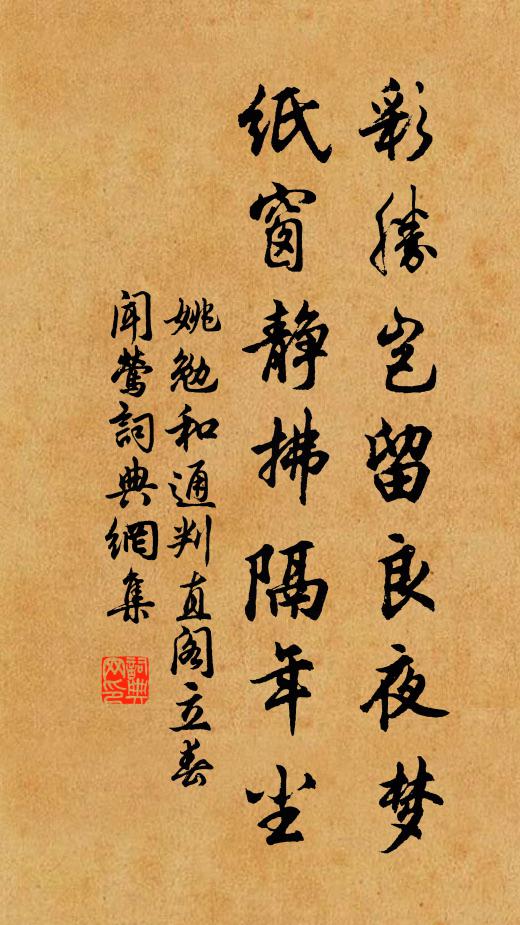 彩勝岂留良夜梦
纸窗静拂隔年尘
姚勉和通判直阁立春
闻莺詞典網集
詞典网印